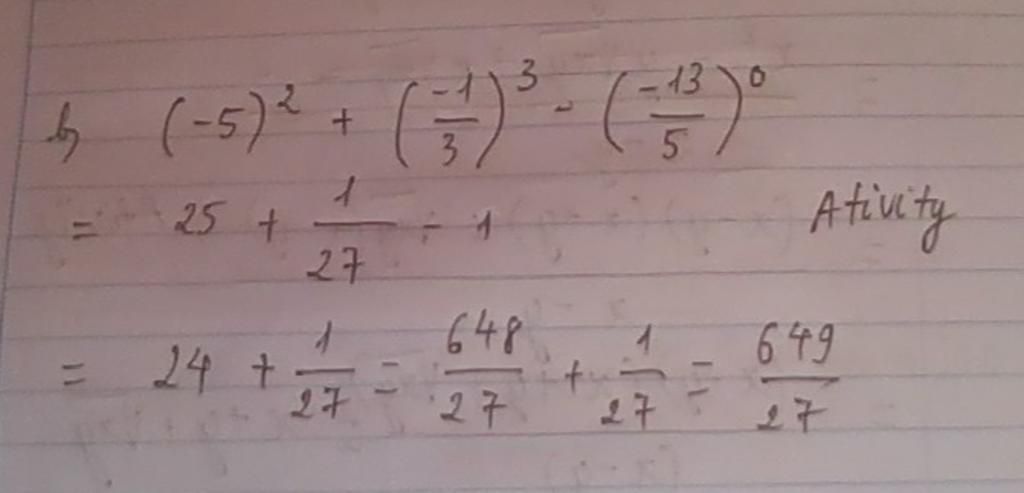 b, (-5)^2 + (-1/3)^3 - (-13/5)^0
= 25 + 1/27 - 1 Ativity
= 24 + 1/27 = 648/27 + 1/27 = 649/27